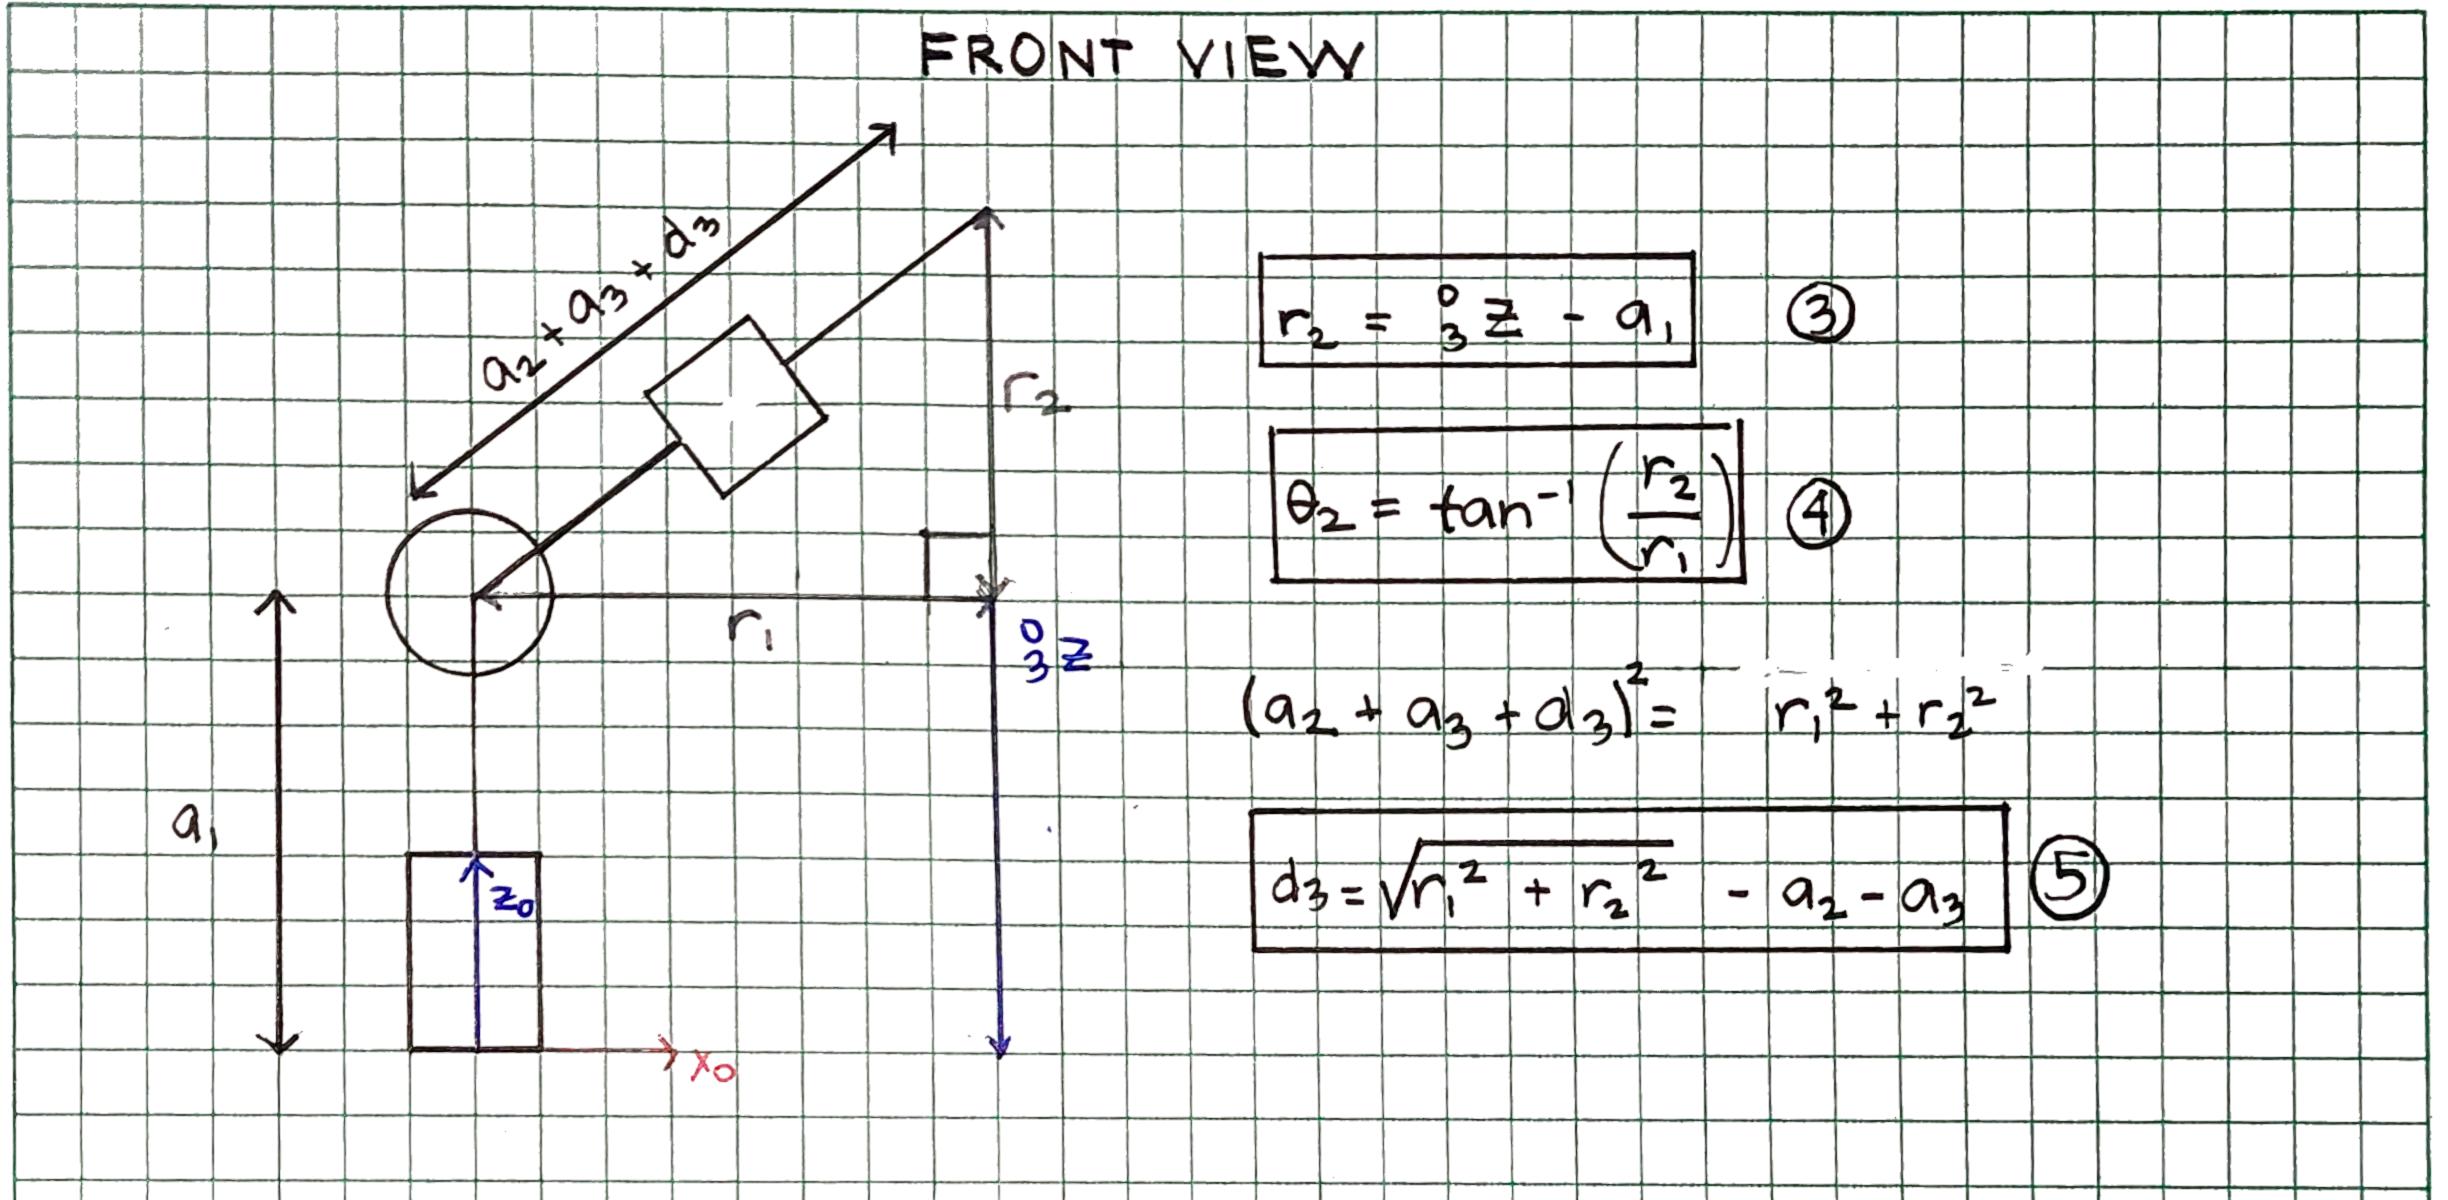 FRONT VIEW
a₂ + a₃ + d₃
r₂
r₁
⁰₃Z
a₁
z₀
x₀
r₂ = ⁰₃Z - a₁ ③
θ₂ = tan⁻¹ (r₂/r₁) ④
(a₂ + a₃ + d₃)² = r₁² + r₂²
d₃ = √(r₁² + r₂²) - a₂ - a₃ ⑤